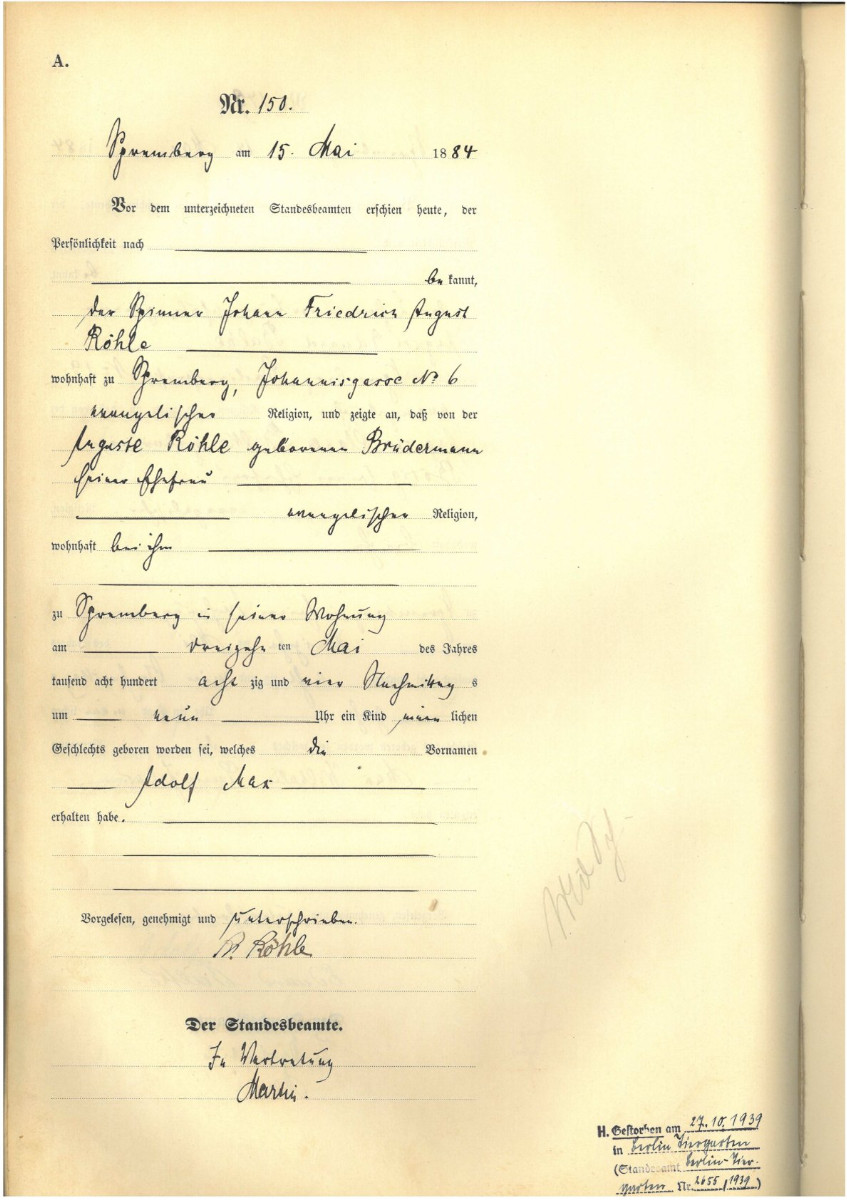 A.
Nr. 150.
Spremberg am 15. Mai 1884
Vor dem unterzeichneten Standesbeamten erschien heute, der
Persönlichkeit nach
be kannt,
der Spinner Johann Friedrich August
Röhle
wohnhaft zu Spremberg, Johannisgasse No 6
evangelischer Religion, und zeigte an, daß von der
Auguste Röhle geborenen Brüdermann
seiner Ehefrau
evangelischer Religion,
wohnhaft bei ihm
zu Spremberg in seiner Wohnung
am dreizehn ten Mai des Jahres
tausend acht hundert acht zig und vier Nachmittag s
um neun Uhr ein Kind männ lichen
Geschlechts geboren worden sei, welches die Vornamen
Adolf Max
erhalten habe.
Vorgelesen, genehmigt und unterschrieben.
Röhle
Der Standesbeamte.
In Vertretung
Martin.
H. Gestorben am 27.10.1939
in Berlin Tiergarten
(Standesamt Berlin-Tier-
garten Nr. 2655/1939)